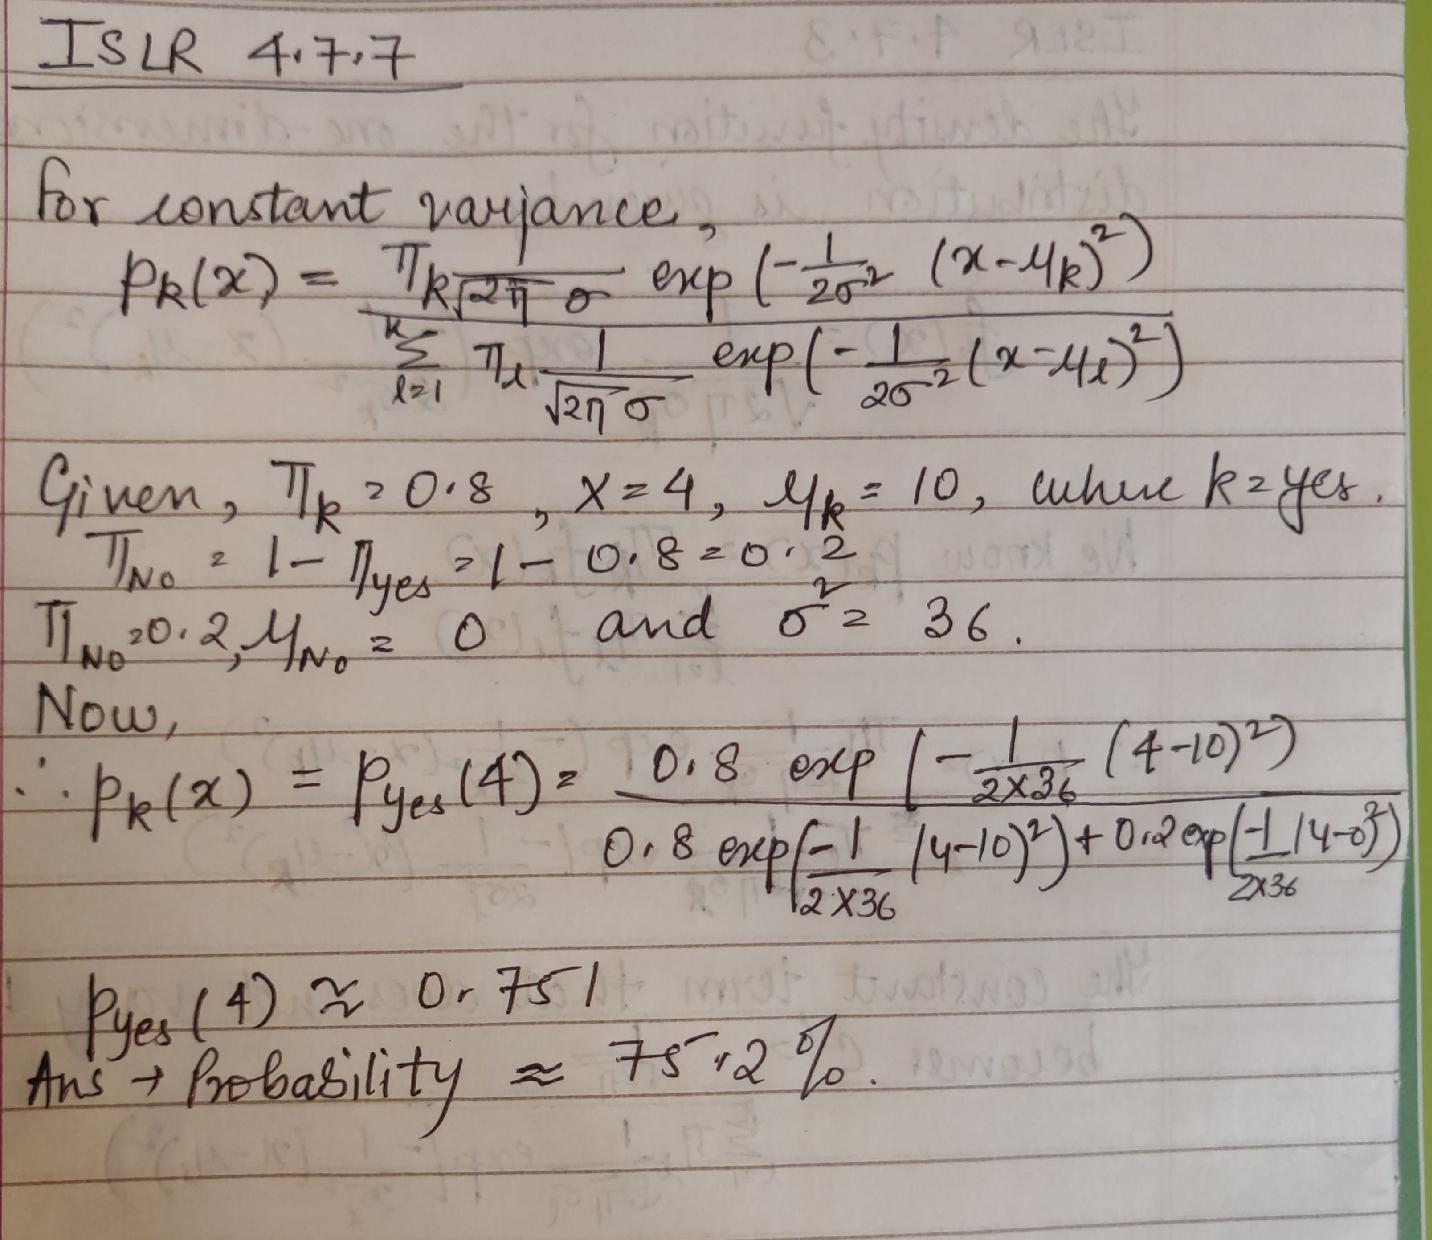 ISLR 4.7.7
For constant variance,
pk(x) = πk 1/√2π σ exp (-1/2σ² (x-μk)²)
K Σ l=1 πl 1/√2π σ exp (-1/2σ² (x-μl)²)
Given, πk = 0.8, X = 4, μk = 10, where k = yes.
πNo = 1 - πyes = 1 - 0.8 = 0.2
πNo = 0.2, μNo = 0 and σ² = 36.
Now,
∴ pk(x) = Pyes(4) = 0.8 exp (-1/2×36 (4-10)²)
0.8 exp (-1/2×36 (4-10)²) + 0.2 exp (-1/2×36 (4-0)²)
Pyes(4) ≈ 0.751
Ans → Probability ≈ 75.2%.